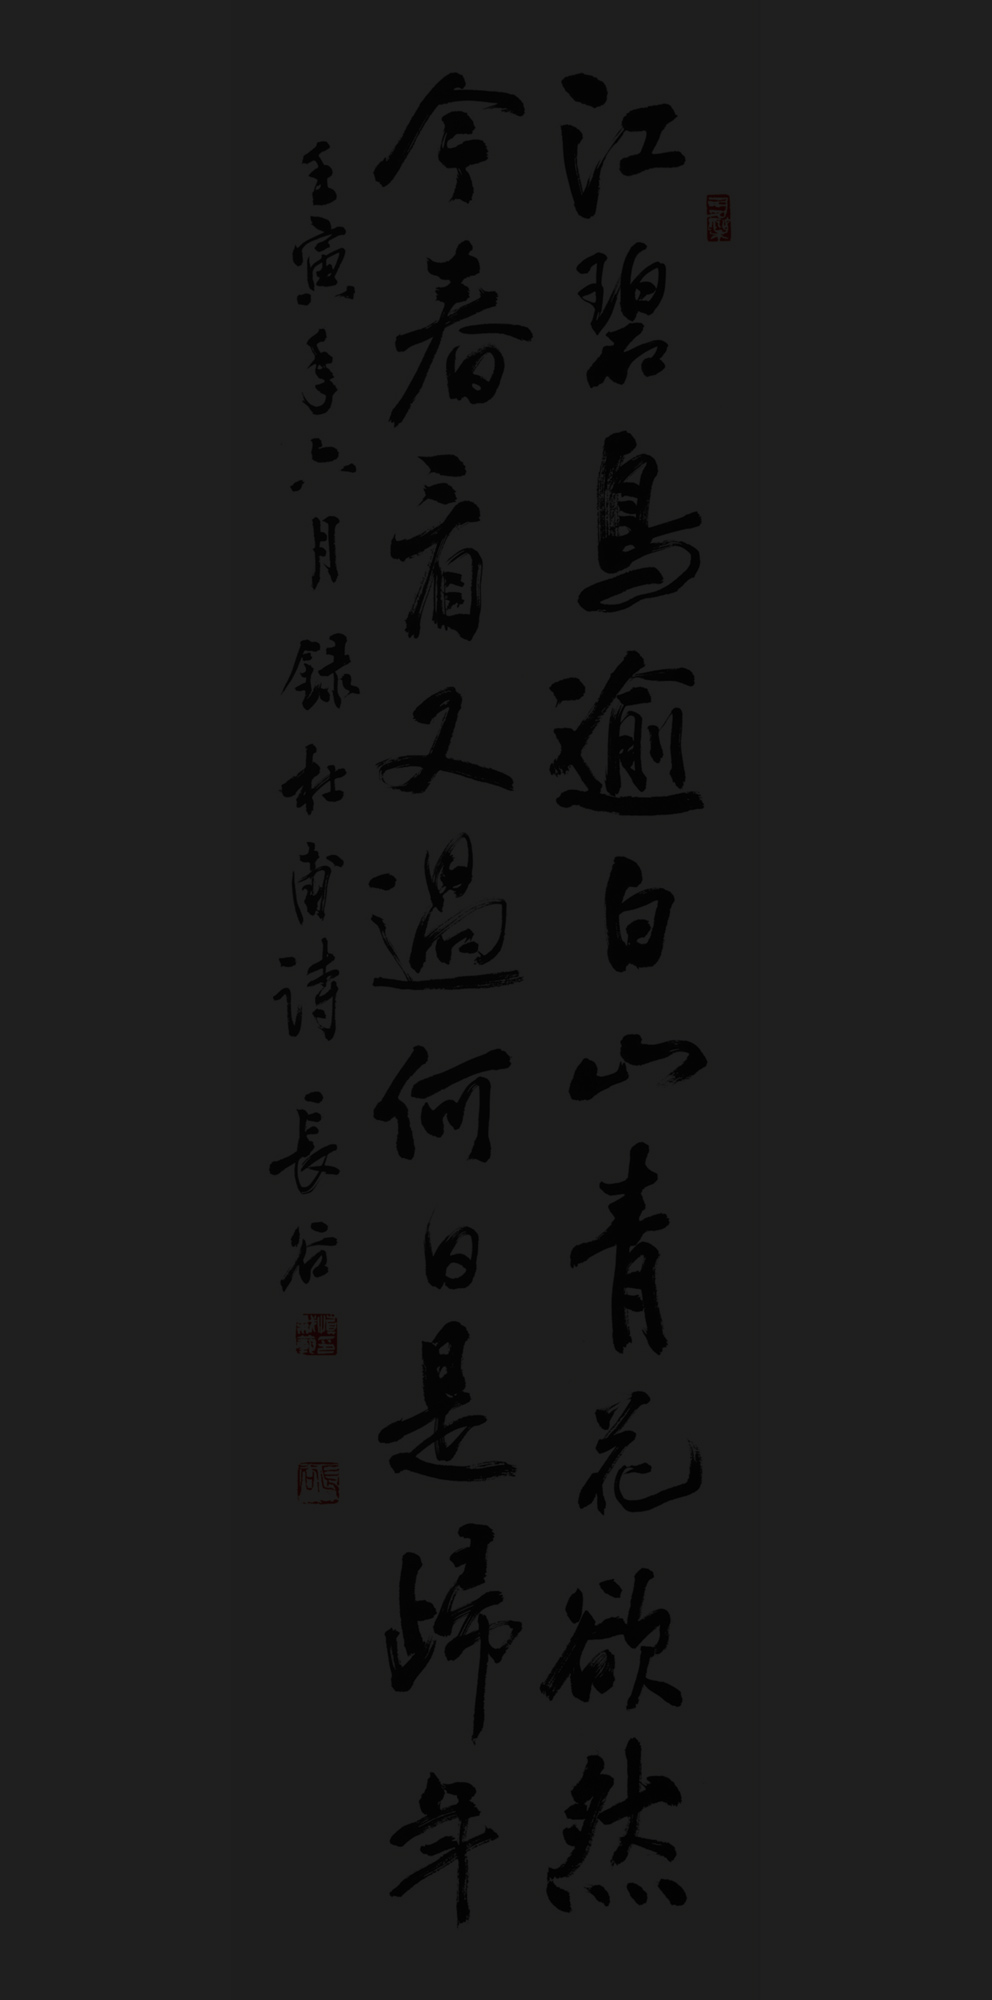 江碧鳥逾白山青花欲然
今春看又過何日是歸年
壬寅年六月 録杜甫詩 長谷